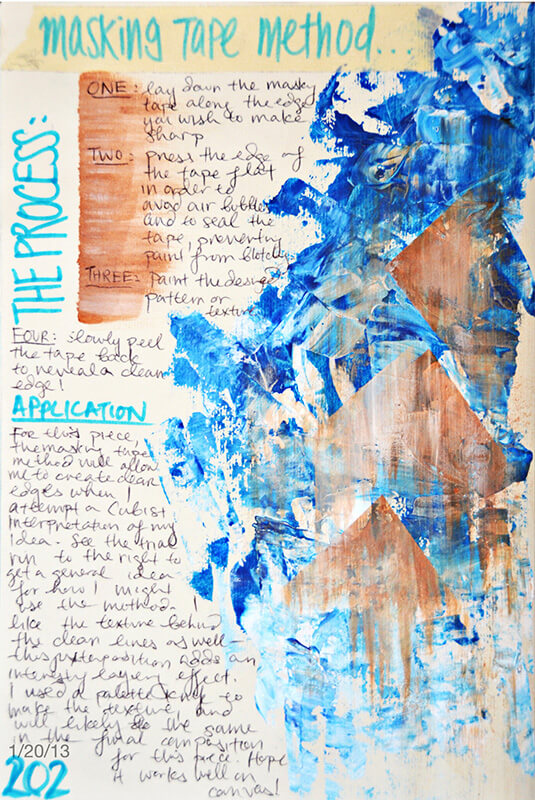 masking Tape method...
THE PROCESS:
ONE: lay down the masking
tape along the edge
you wish to make
sharp
TWO: press the edge of
the tape flat
in order to
avoid air bubbles
and to seal the
tape, preventing
paint from blotching
THREE: paint the desired
pattern or
texture
FOUR: slowly peel
the tape back
to reveal a clean
edge!
APPLICATION
For this piece,
the masking tape
method will allow
me to create clean
edges when I
attempt a Cubist
interpretation of my
idea. See the trial
run to the right to
get a general idea
for how I might
use the method. I
like the texture behind
the clean lines as well—
this juxtaposition adds an
interesting layering effect.
I used a palette knife to
make the texture and
will likely do the same
in the final composition
for this piece. Hope
it works well on
canvas!
1/20/13
202